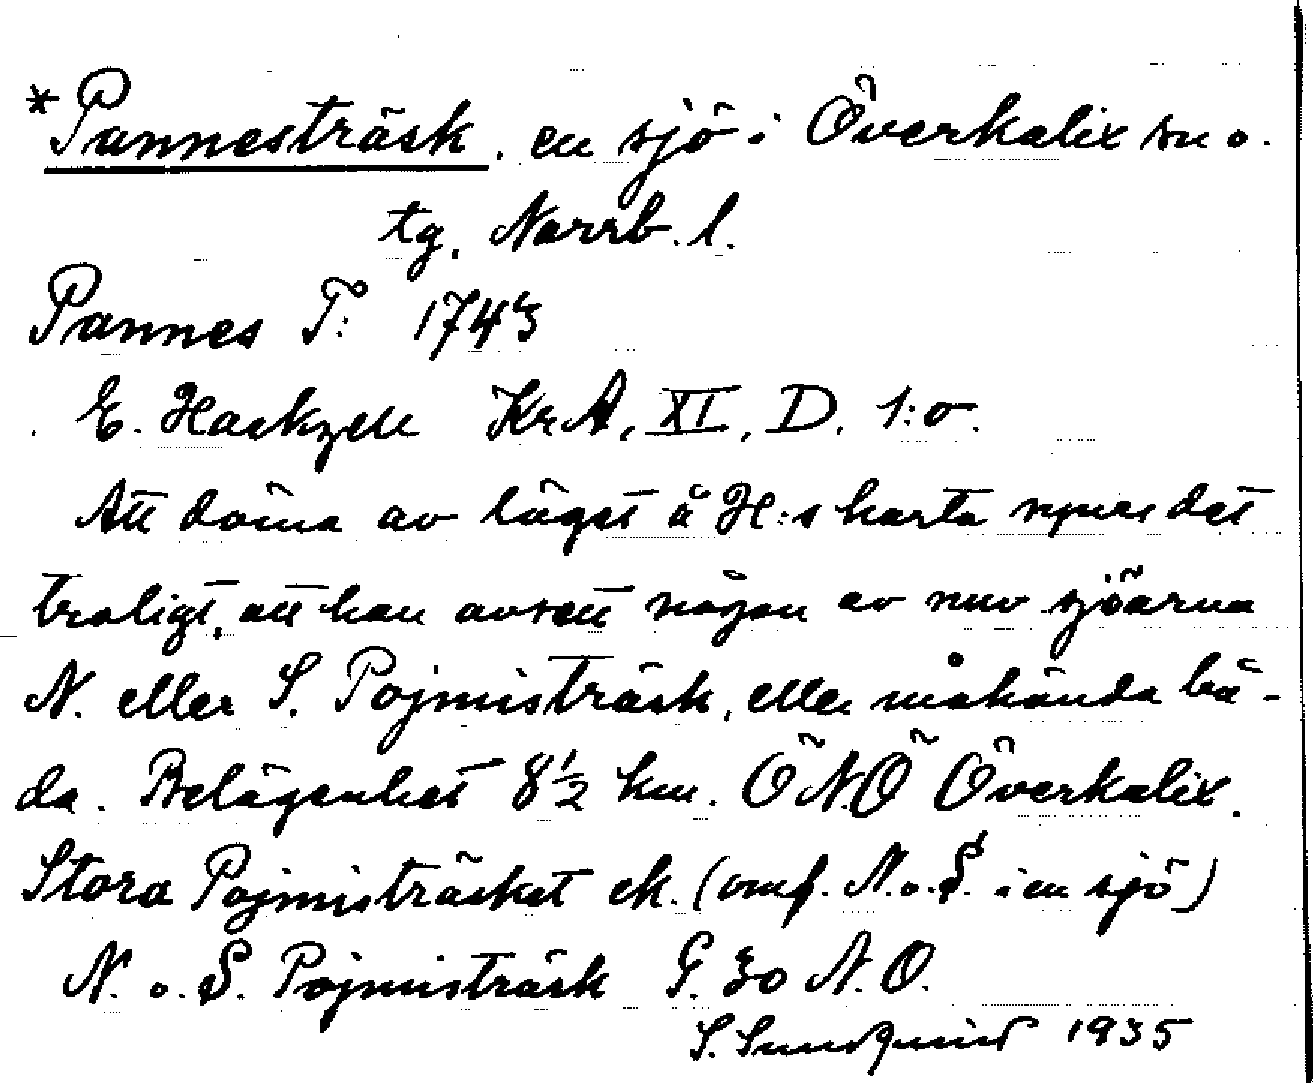 *Pannesträsk, en sjö i Överkalix sn o.
tg, Norrb. l.
Pannes T: 1743
E. Hackzell KrA, XI, D. 1:o.
Att döma av läget å H:s karta synes det
troligt, att han avsett någon av nuv sjöarna
N. eller S. Pojmisträsk, eller måhända bå-
da. Belägenhet 8½ km. ÖNÖ Överkalix.
Stora Pojmisträsket ek. (omf. N. o. S. i en sjö)
N. o. S. Pojmisträsk G. 30 N. O.
S. Sundquist 1935